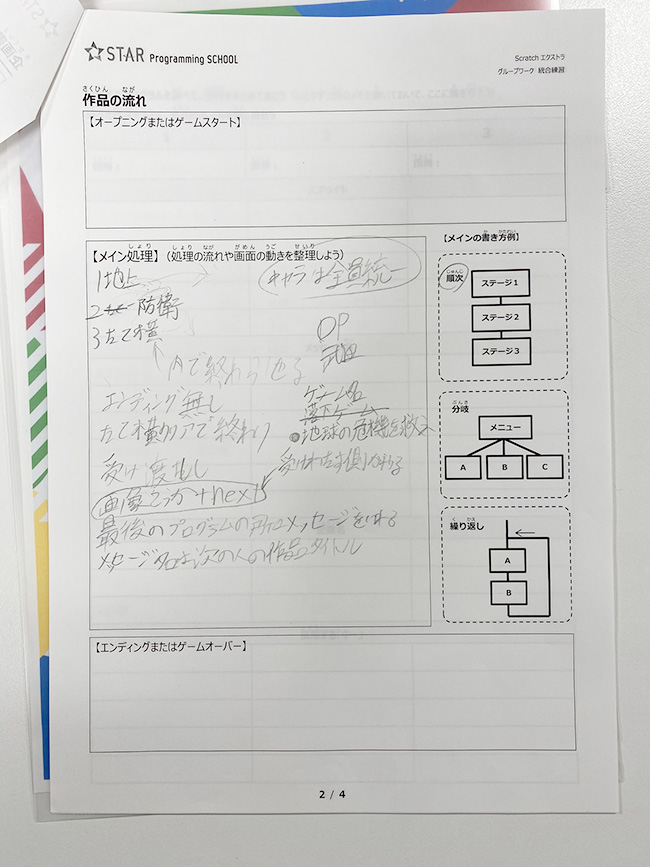 STAR Programming SCHOOL
Scratch エクストラ
グループワーク 統合練習
さくひん なが
作品の流れ
【オープニングまたはゲームスタート】
しょり しょり なが がめん うご せいり
【メイン処理】(処理の流れや画面の動きを整理しよう)
1 地上
キャラは全員統一
2 防衛
3 たて横
OP
武田
内で終わらせる
エンディング無し
ゲーム名
たて横クリアで終わり
落下ゲーム
地球の危機を救え
受け渡し
画像 +next
最後のプログラムの メッセージを
メッセージ名は次の人の作品タイトル
【メインの書き方例】
じゅんじ
順次
ステージ1
ステージ2
ステージ3
ぶんき
分岐
メニュー
A B C
く かえ
繰り返し
A
B
【エンディングまたはゲームオーバー】
2 / 4